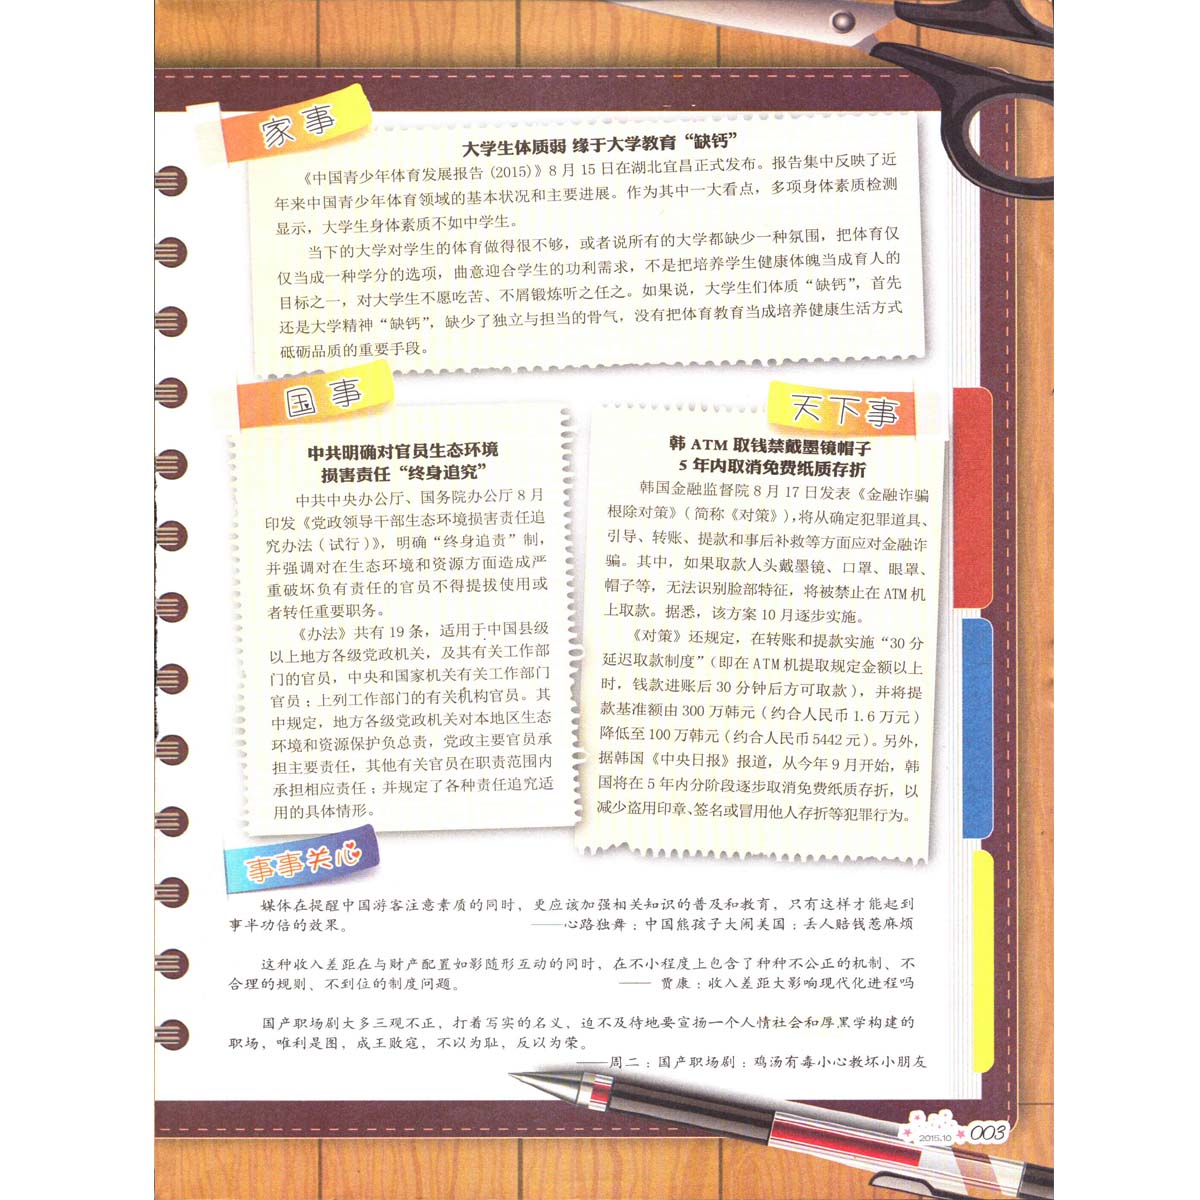 家事
大学生体质弱 缘于大学教育“缺钙”
《中国青少年体育发展报告(2015)》8月15日在湖北宜昌正式发布。报告集中反映了近
年来中国青少年体育领域的基本状况和主要进展。作为其中一大看点，多项身体素质检测
显示，大学生身体素质不如中学生。
当下的大学对学生的体育做得很不够，或者说所有的大学都缺少一种氛围，把体育仅
仅当成一种学分的选项，曲意迎合学生的功利需求，不是把培养学生健康体魄当成育人的
目标之一，对大学生不愿吃苦、不屑锻炼听之任之。如果说，大学生们体质“缺钙”，首先
还是大学精神“缺钙”，缺少了独立与担当的骨气，没有把体育教育当成培养健康生活方式
砥砺品质的重要手段。
国事
中共明确对官员生态环境
损害责任“终身追究”
中共中央办公厅、国务院办公厅8月
印发《党政领导干部生态环境损害责任追
究办法（试行）》，明确“终身追责”制，
并强调对在生态环境和资源方面造成严
重破坏负有责任的官员不得提拔使用或
者转任重要职务。
《办法》共有19条，适用于中国县级
以上地方各级党政机关，及其有关工作部
门的官员，中央和国家机关有关工作部门
官员；上列工作部门的有关机构官员。其
中规定，地方各级党政机关对本地区生态
环境和资源保护负总责，党政主要官员承
担主要责任，其他有关官员在职责范围内
承担相应责任；并规定了各种责任追究适
用的具体情形。
天下事
韩ATM取钱禁戴墨镜帽子
5年内取消免费纸质存折
韩国金融监督院8月17日发表《金融诈骗
根除对策》（简称《对策》），将从确定犯罪道具、
引导、转账、提款和事后补救等方面应对金融诈
骗。其中，如果取款人头戴墨镜、口罩、眼罩、
帽子等，无法识别脸部特征，将被禁止在ATM机
上取款。据悉，该方案10月逐步实施。
《对策》还规定，在转账和提款实施“30分
延迟取款制度”（即在ATM机提取规定金额以上
时，钱款进账后30分钟后方可取款），并将提
款基准额由300万韩元（约合人民币1.6万元）
降低至100万韩元（约合人民币5442元）。另外，
据韩国《中央日报》报道，从今年9月开始，韩
国将在5年内分阶段逐步取消免费纸质存折，以
减少盗用印章、签名或冒用他人存折等犯罪行为。
事事关心
媒体在提醒中国游客注意素质的同时，更应该加强相关知识的普及和教育，只有这样才能起到
事半功倍的效果。 ——心路独舞：中国熊孩子大闹美国：丢人赔钱惹麻烦
这种收入差距在与财产配置如影随形互动的同时，在不小程度上包含了种种不公正的机制、不
合理的规则、不到位的制度问题。 —— 贾康：收入差距大影响现代化进程吗
国产职场剧大多三观不正，打着写实的名义，迫不及待地要宣扬一个人情社会和厚黑学构建的
职场，唯利是图，成王败寇，不以为耻，反以为荣。
——周二：国产职场剧：鸡汤有毒小心教坏小朋友
2015.10 003